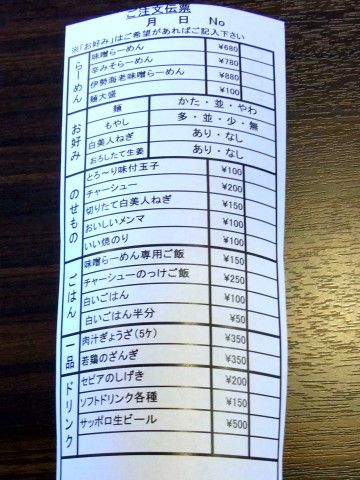 ご注文伝票
月 日 No
※「お好み」はご希望があればご記入下さい
らーめん
味噌らーめん ¥680
辛みそらーめん ¥780
伊勢海老味噌らーめん ¥880
麺大盛 ¥100
お好み
麺 かた・並・やわ
もやし 多・並・少・無
白美人ねぎ あり・なし
おろしたて生姜 あり・なし
のせもの
とろ～り味付玉子 ¥100
チャーシュー ¥200
切りたて白美人ねぎ ¥150
おいしいメンマ ¥100
いい焼のり ¥100
ごはん
味噌らーめん専用ご飯 ¥150
チャーシューのっけご飯 ¥250
白いごはん ¥100
白いごはん半分 ¥50
一品
肉汁ぎょうざ(5ケ) ¥350
若鶏のざんぎ ¥350
ドリンク
セピアのしげき ¥200
ソフトドリンク各種 ¥150
サッポロ生ビール ¥500